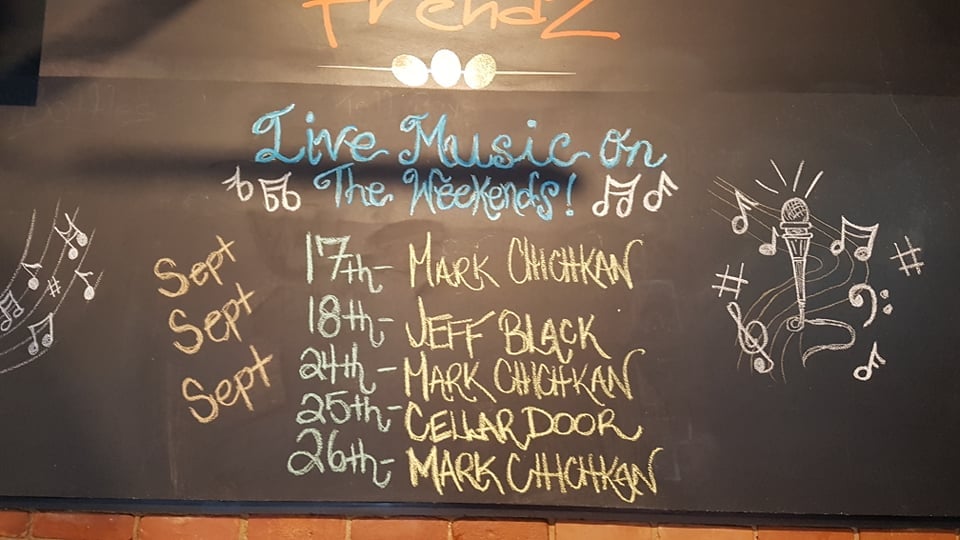 Frendz
Live Music on
The Weekends!
Sept 17th- MARK CHICHKAN
Sept 18th- JEFF BLACK
Sept 24th- MARK CHICHKAN
25th- CELLAR DOOR
26th- MARK CHICHKAN